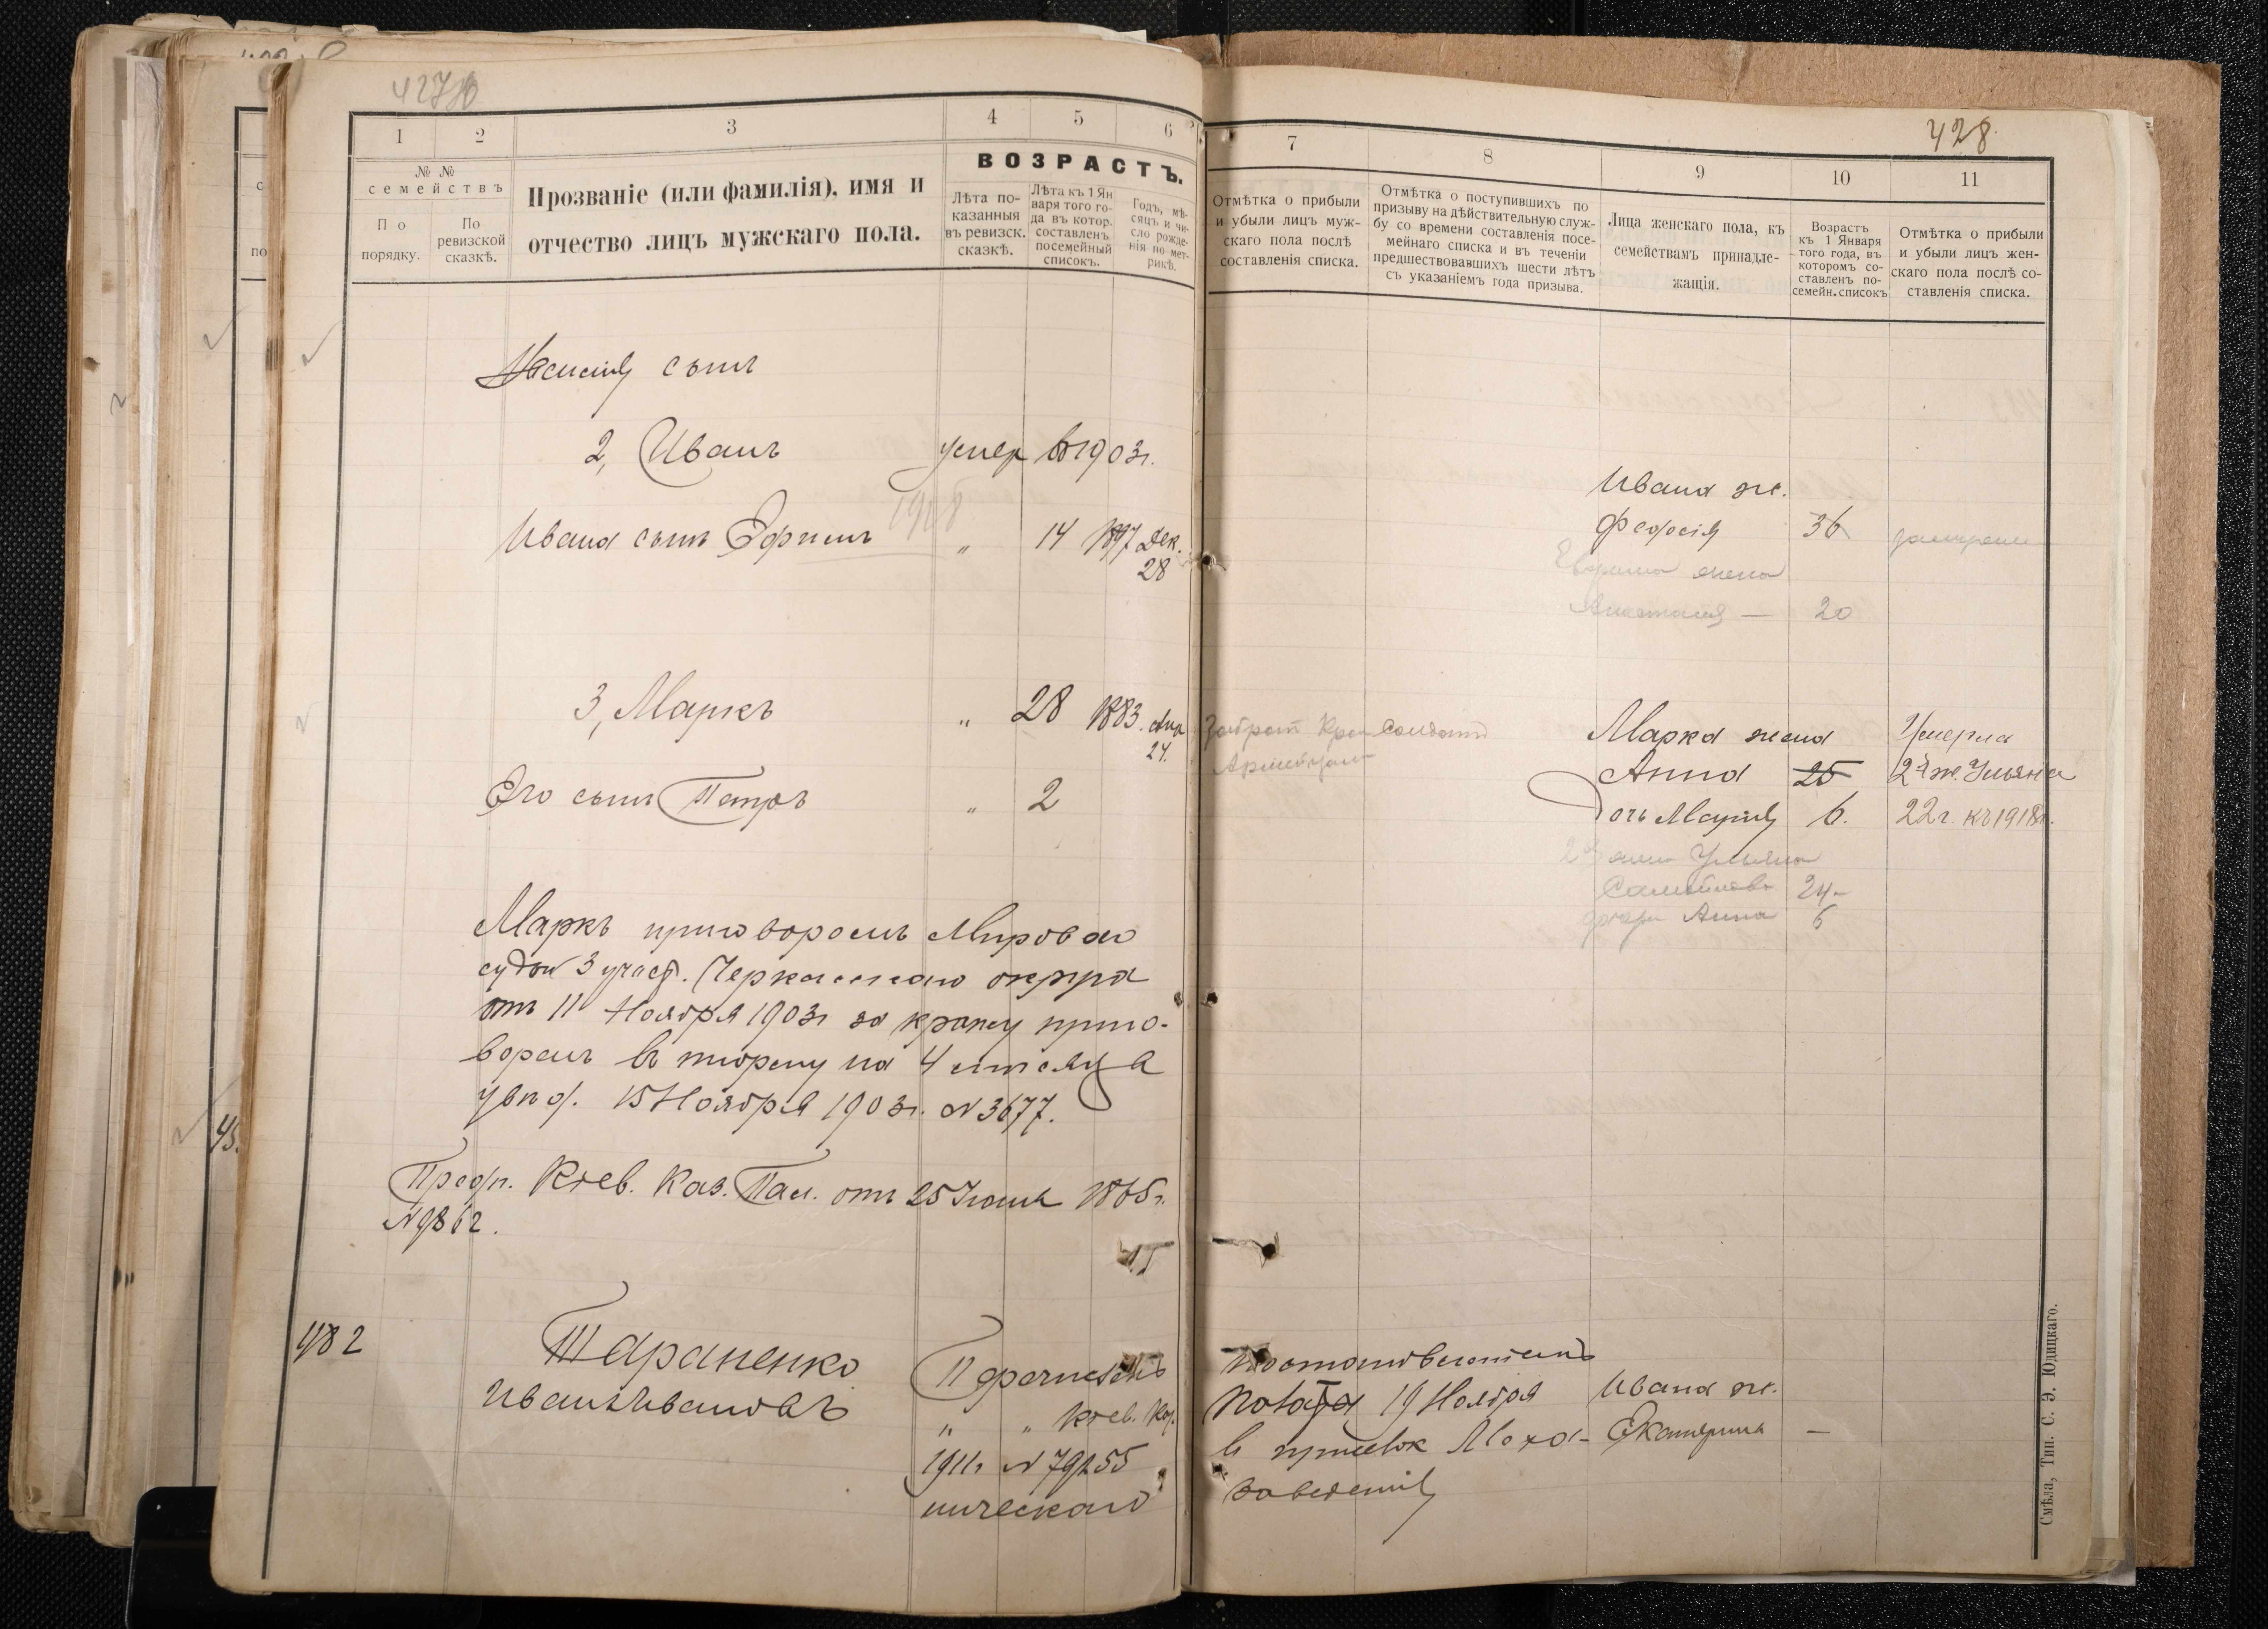 427
428
1
2
3
4
5
6
№ №
семействъ
По
порядку.
По
ревизской
сказкѣ.
Прозваніе (или фамилія), имя и
отчество лицъ мужскаго пола.
ВОЗРАСТЪ.
Лѣта по-
казанныя
въ ревизск.
сказкѣ.
Лѣта къ 1 Ян
варя того го-
да въ котор.
составленъ
посемейный
списокъ.
Годъ, мѣ-
сяцъ и чи-
сло рожде-
нія по мет-
рикѣ.
сынъ
2, Иванъ умер въ 1903г.
Ивана сынъ Ефимъ " 14 1897 Дек.
28
3, Маркъ " 28 1883. Апр
24.
Его сынъ Петръ " 2
Маркъ приговоромъ Мирового
судьи 3 участ. Черкасскаго округа
отъ 11 Ноября 1903г за кражу приго-
воренъ въ тюрьму на 4 мѣсяца
увѣд. 15 Ноября 1903г. №3677.
Предп. Кіев. Каз. Пал. отъ 25 Іюня 1865г.
№9862.
482
Тараненко
Иванъ Ивановъ
" " Кіев. Каз.
1911г №79255
ническаго
7
8
9
10
11
Отмѣтка о прибыли
и убыли лицъ муж-
скаго пола послѣ
составленія списка.
Отмѣтка о поступившихъ по
призыву на дѣйствительную служ-
бу со времени составленія посе-
мейнаго списка и въ теченіи
предшествовавшихъ шести лѣтъ
съ указаніемъ года призыва.
Лица женскаго пола, къ
семействамъ принадле-
жащія.
Возрастъ
къ 1 Января
того года, въ
которомъ со-
ставленъ по-
семейн. списокъ
Отмѣтка о прибыли
и убыли лицъ жен-
скаго пола послѣ со-
ставленія списка.
Ивана ж.
Феодосія 36
жена
Анастасія — 20
Марка жена Умерла
Анна 25 2я ж. Ульяна
Дочь Марія 6. 22г. къ 1918г.
2я жена Ульяна
Самойлова 24-
дочери Анна 6
19 Ноября Ивана ж.
Екатерина —
заведенія
Смѣла, Тип. С. Э. Юдицкаго.